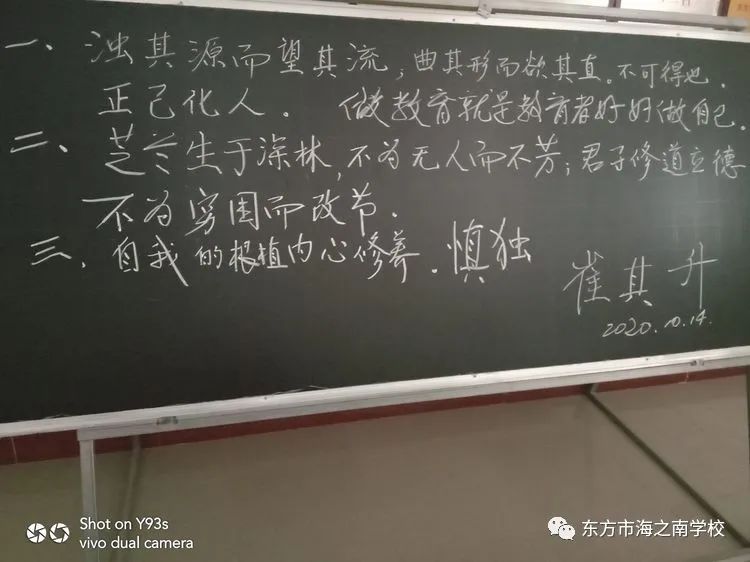 一、浊其源而望其流；曲其形而欲其直。不可得也.
正己化人.做教育就是教育者好好做自己。
二、芝兰生于深林,不为无人而不芳；君子修道立德
不为穷困而改节.
三.自我的根植内心修养.慎独
崔其升
2020.10.14.
Shot on Y93s
vivo dual camera
东方市海之南学校